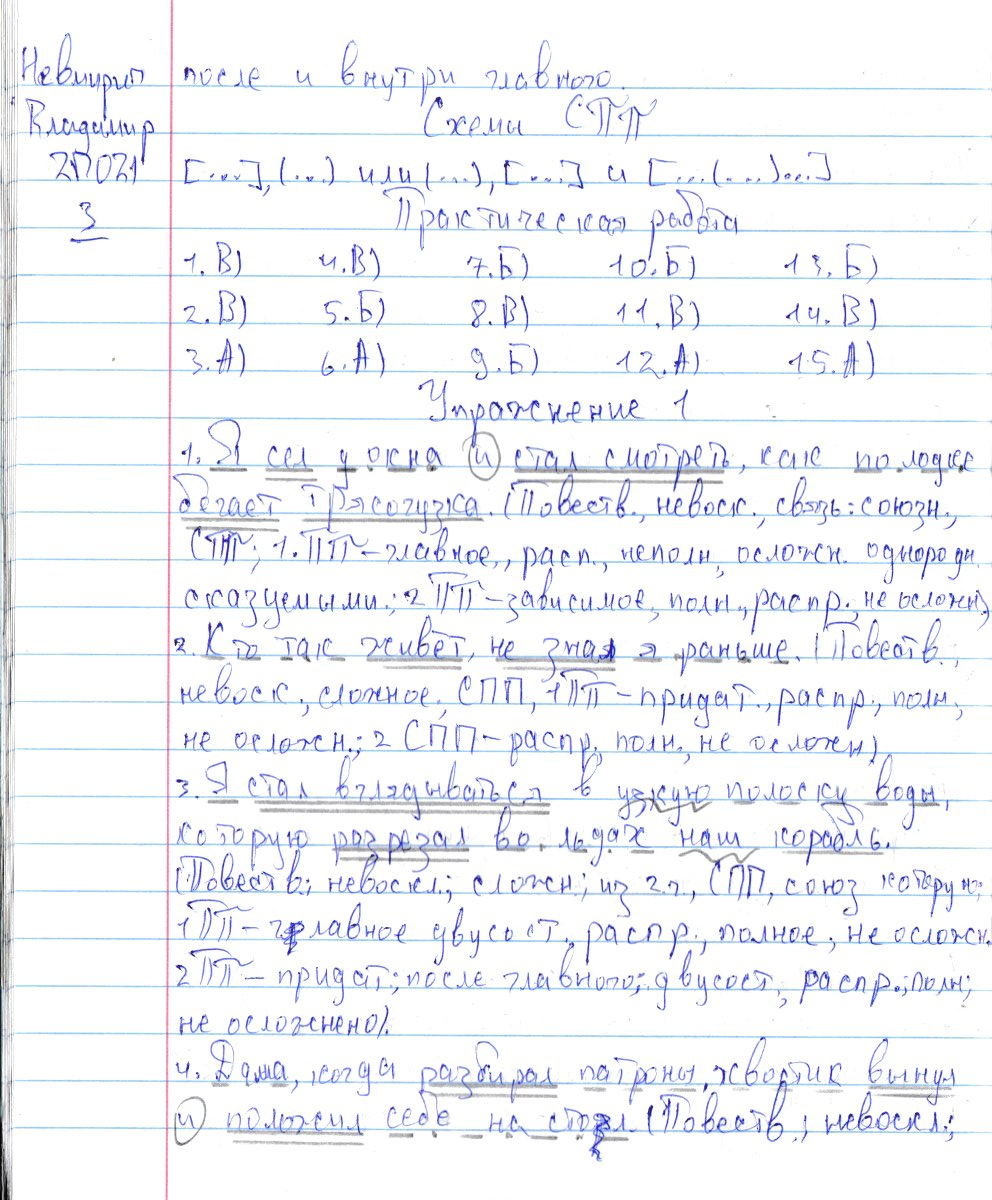 Невмирип
Владимир
2П021
3
после и внутри главного.
Схемы СПП
[...],(...) или (...), [...] и [...(...)...]
Практическая работа
1. В) 4. В) 7. Б) 10. Б) 13. Б)
2. В) 5. Б) 8. В) 11. В) 14. В)
3. А) 6. А) 9. Б) 12. А) 15. А)
Упражнение 1
1. Я сел у окна и стал смотреть, как по лодке
бегает трясогузка. (Повеств., невоск., связь: союзн.,
СПП; 1. ПП - главное, расп., неполн, осложн. однородн.
сказуемыми.; 2 ПП - зависимое, полн., распр., не осложн)
2. Кто так живёт, не знал я раньше. (Повеств.,
невоск., сложное, СПП, 1 ПП - придат., распр., полн.,
не осложн.; 2 СПП - распр., полн., не осложн)
3. Я стал вглядываться в узкую полоску воды,
которую разрезал во льдах наш корабль.
(Повеств.; невоскл.; сложн.; из 2 ч., СПП, союз которую;
1 ПП - главное двусост, распр., полное, не осложн.
2 ПП - придат.; после главного; двусост, распр.; полн;
не осложнено).
4. Дама, когда разбирал патроны, жвортик вынул
и положил себе на стол. (Повеств.; невоскл.;